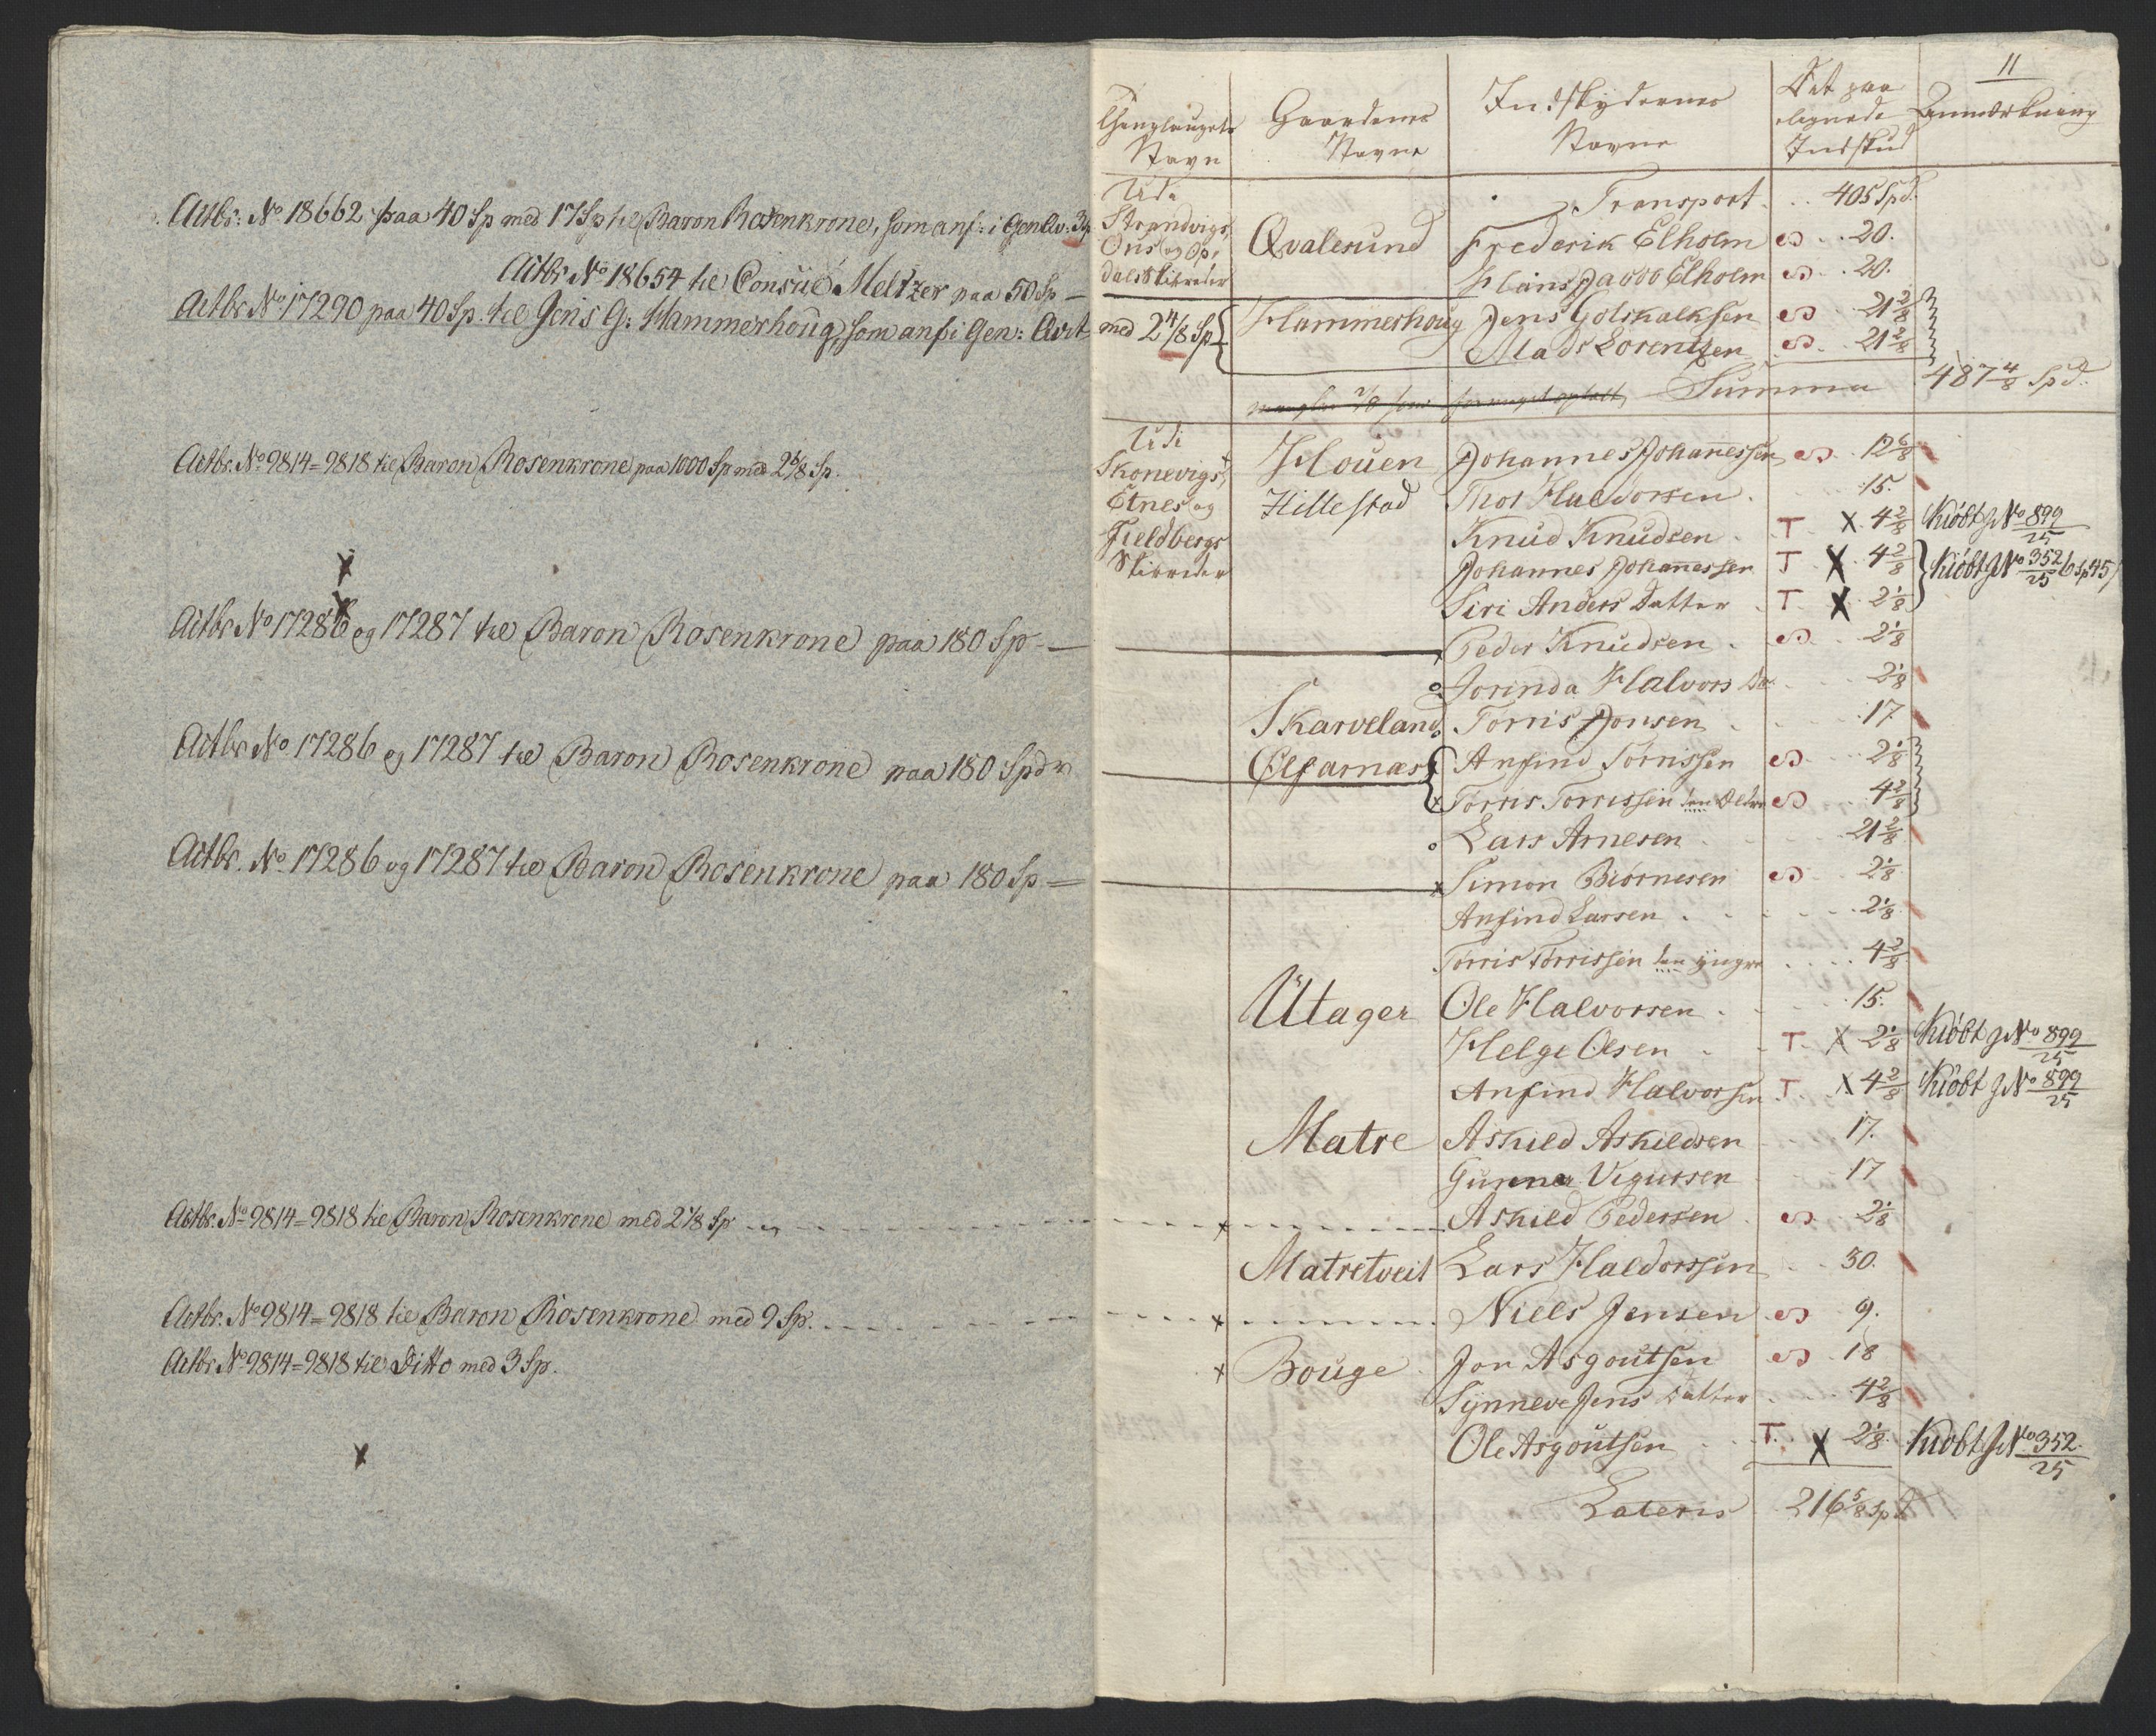 Actbr: No 18662 paa 40 Sp med 17 Sp til Baron Rosenkrone, som anf: i Gen
Actbr No 18654 til Consul Meltzer paa 50 Sp —
Actbr No 17290 paa 40 Sp. til Jens G: Hammerhoug, som anf i Gen:
Actbr. No 9814=9818 til Baron Rosenkrone paa 1000 Sp med 2 6/8 Sp.
x
x
Actbr No 17286 og 17287 til Baron Rosenkrone paa 180 Sp —
Actbr No 17286 og 17287 til Baron Rosenkrone paa 180 Spdr
Actbr. No 17286 og 17287 til Baron Rosenkrone paa 180 Sp =
Actbr. No 9814=9818 til Baron Rosenkrone med 2 1/8 Sp
Actbr. No 9814=9818 til Baron Rosenkrone med 9 Sp.
Actbr No 9814=9818 til Ditto med 3 Sp.
x
11
Thinglaugets Navn
Gaardenes Navne
Indskydernes Navne
Det paalignede Indskud
Anmærkning
Udi Strandvigs, Ous og Opdals Skibreder
Transport . . 405 Spd.
Qvalesund Frederik Elholm . . 20.
Hans Jacob Elholm . . 20.
med 2 4/8 Sp Hammerhoug Jens Gotskalksen . . 21 2/8
Mads Lorentzen . . 21 2/8
Summa 487 4/8 Spd.
Udi Skonevigs, Etnes og Fieldbergs Skibreder
Houen Johannes Johannessen . . 12 6/8
Hillestad Thor Haldorsen . . 15.
Knud Knudsen . T x 4 2/8 Kiöbt J No 899/25
Johannes Johannessen T x 4 2/8 Kiöbt J No 352/25 6 sp 45
Siri Anders Datter . T x 2 1/8
x Peder Knudsen . . 2 1/8
o Jorinda Halvors Dr . . 2 1/8
Skarveland Torris Jonsen . . 17.
Ølfarnas Anfind Torrissen . . 2 1/8
x Torris Torrissen den Eldre . . 4 2/8
o Lars Arnesen . . 21 2/8
x Simon Biørnesen . . 2 1/8
Anfind Larsen . . 2 1/8
Torris Torrissen den yngre . . 4 2/8
Utager Ole Halvorsen . . 15.
Helge Olsen . . T. x 2 1/8 Kiöbt J No 899/25
Anfind Halvorsen T. x 4 2/8 Kiöbt J No 899/25
Matre Askild Askildsen . . 17.
Gunner Vigursen . . 17
x Askild Pedersen . . 2 1/8
Matretveit Lars Haldorssen . . 30.
x Niels Jensen . . 9.
x Bouge Jon Asgoutsen . . 18
Synneve Jens Datter . . 4 2/8
Ole Asgoutsen . . T. x 2 1/8 Kiöbt J No 352/25
Lateris 216 5/8 Spd